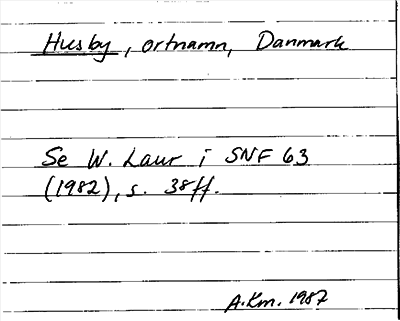 Husby, ortnamn, Danmark
Se W. Laur i SNF 63
(1982), s. 38ff.
A.Km. 1987